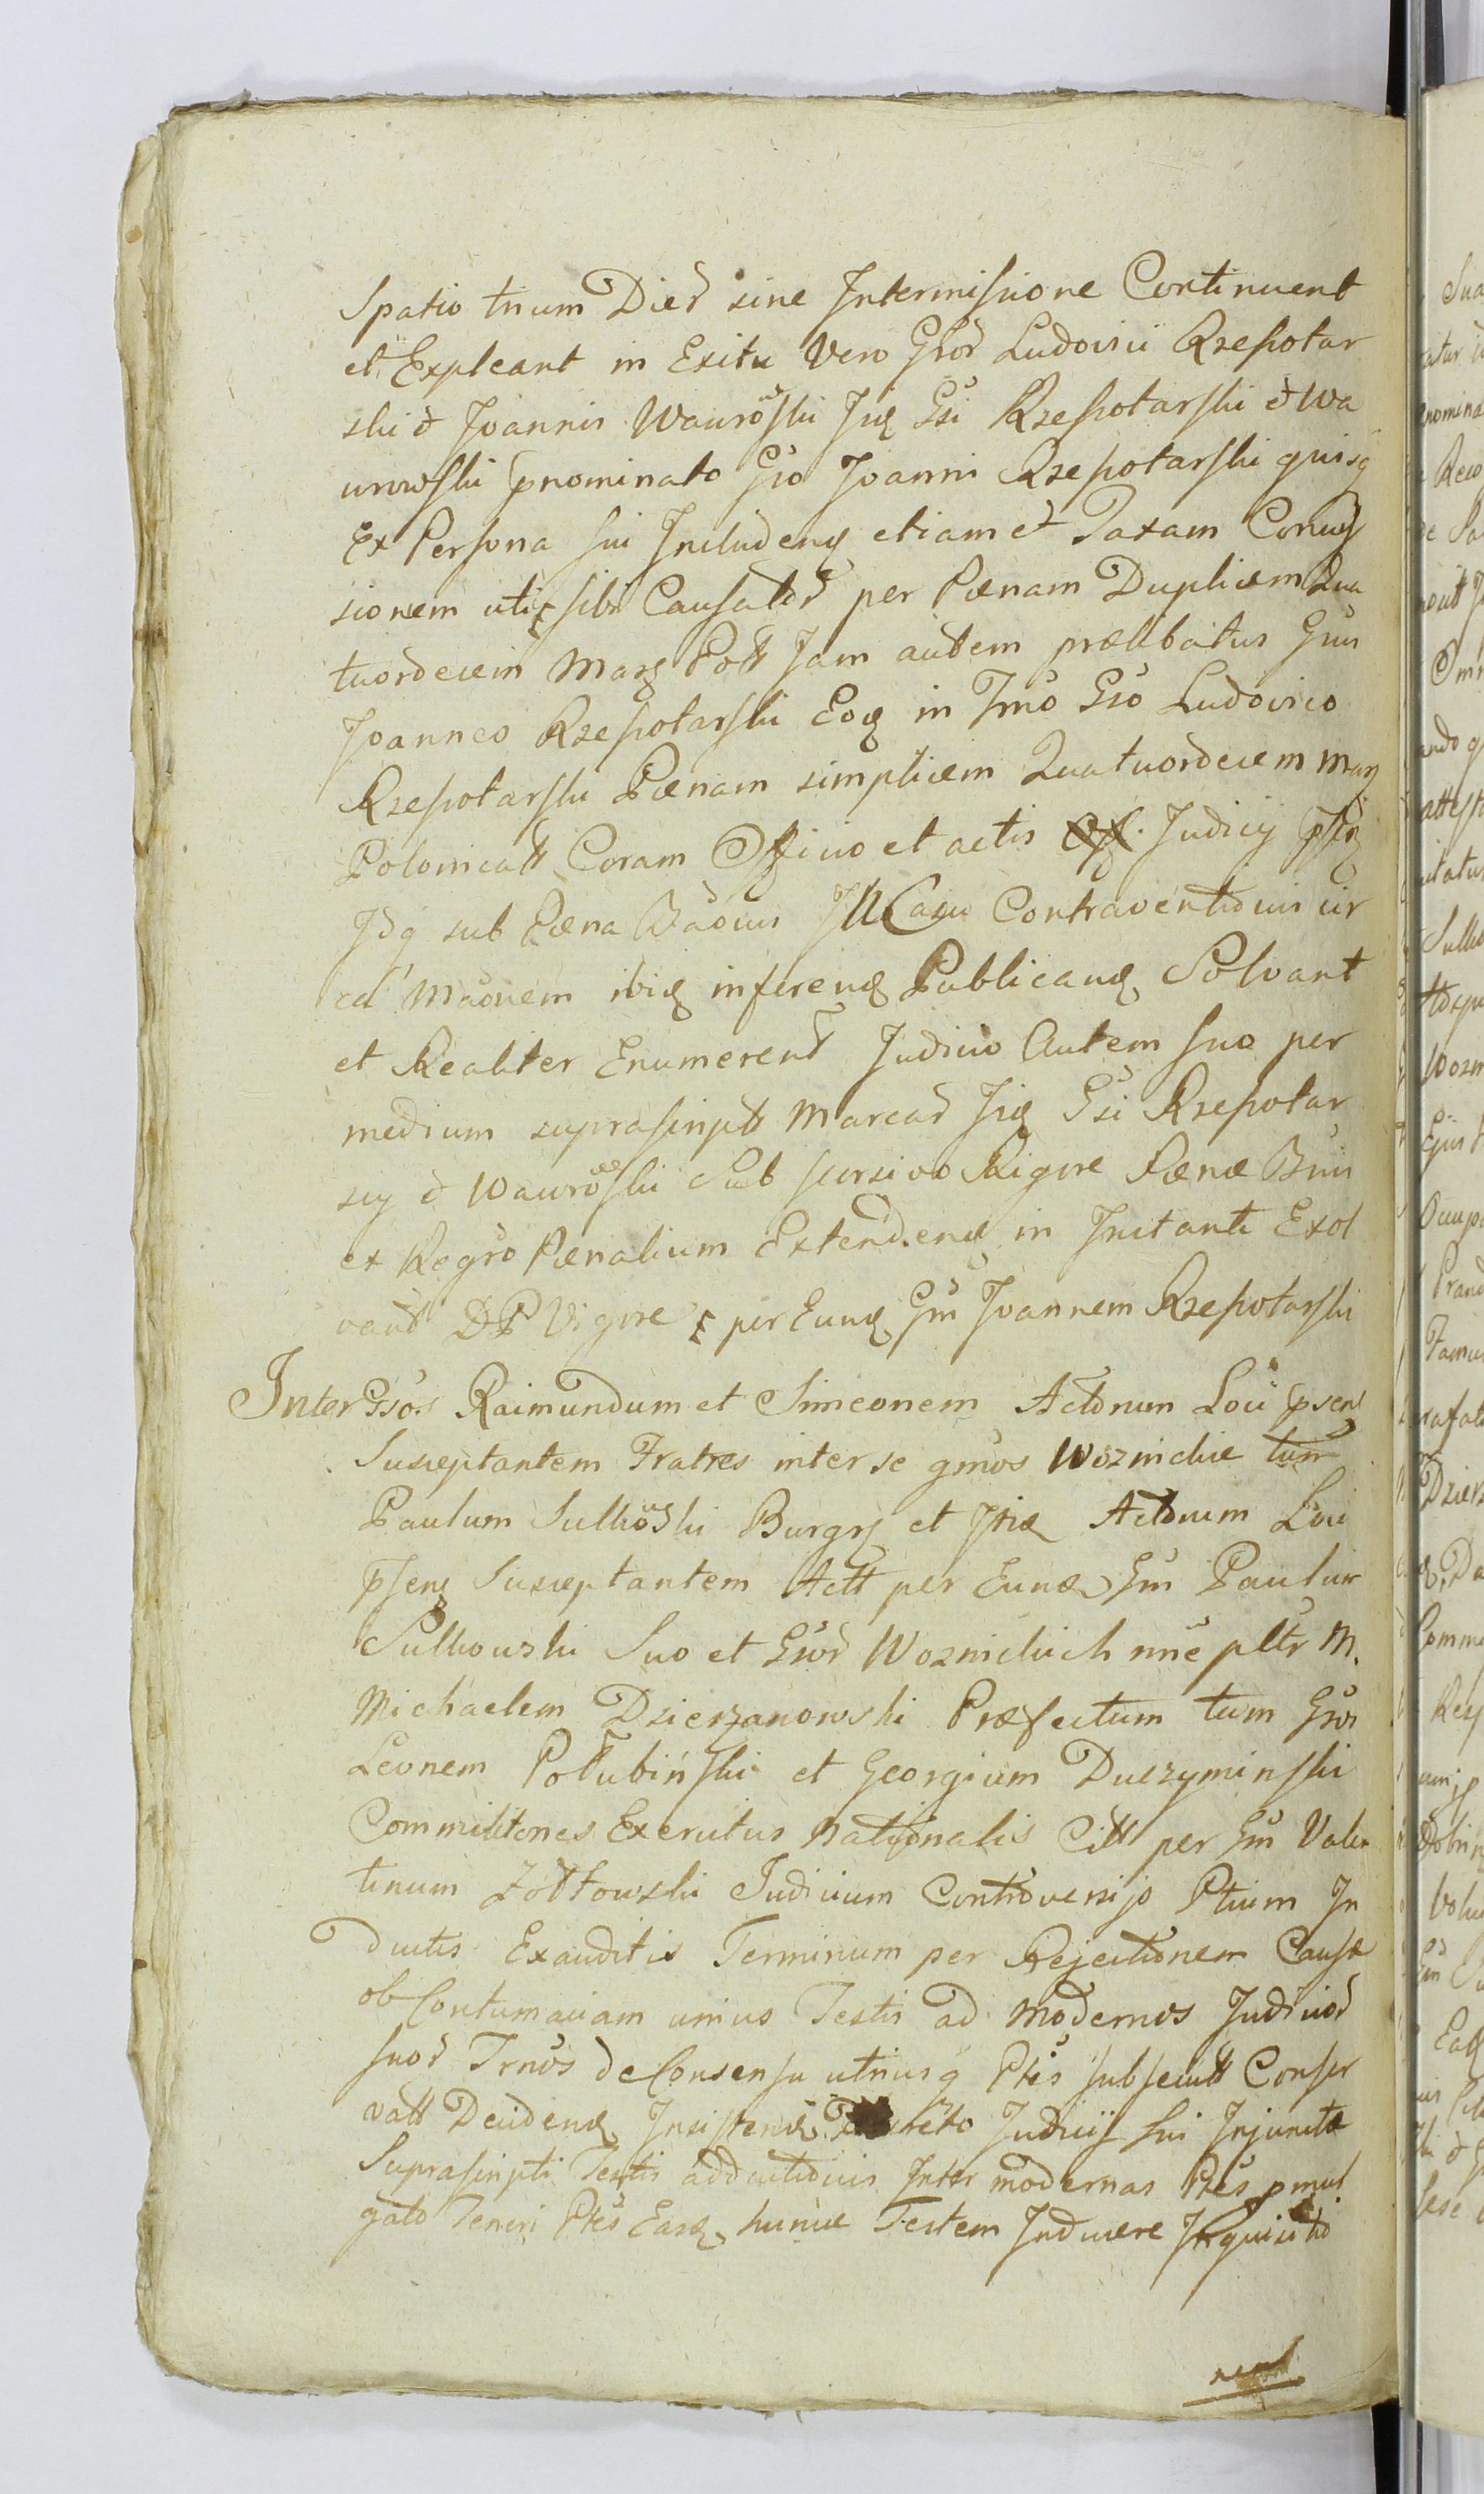 Spatio trium Dier sine Intermissione Continuent
et Expleant in Exitu Vero Gsor Ludovici Rzeszotar
ski & Joannis Wawrowski Iidq Gsi Rzeszotarski & Wa
wrowski pnominato Gso Joanni Rzeszotarski quisq
Ex Persona sui Includenq etiam et Taxam
sionem utiq sibi Causator per Pœnam Duplicem Qua
tuordecim Marq Poll Jam autem prælibatus Gsus
Joannes Rzeszotarski Eoq in Tmo Gso Ludovico
Rzeszotarski Pœnam simplicem Quatuordecem Marq
Polonicall Coram Officio et actis Judicij pstis
Idq sub Pœna Baõnis In Casu Contraventionis cir
ca Maõnem ibiq inferenq Publicanq Solvant
et Realiter Enumerent Judicio Autem suo per
medium suprascriptt Marcar Iidq Gsi Rzeszotar
scy & Wawrowski Sub Rigore Pœnæ Bnis
ex Regro Pœnalium Extendenq in Instanti Exol
vant DP Vigore per Eunq Gm Joannem Rzeszotarski
Inter Gsos Raimundum et Simeonem Actorum Loci psent
Susceptantem Fratres inter se gmos Woznickie tum
Paulum Sulkowski Burgrj et Actorum Loci
psenq Susceptantem Actt per Eunq Gm Paulum
Sulkowski Suo et Gsor Woznickich nne pltr M.
Michaelem Dzierzanowski Præfectum tum Gsos
Leonem Połubiński et Georgium Duczyminski
Commilitones Exercitus Nationalis Citt per Gm Valen
tinum Zółtowski Judicium Controversijs Ptium In
ductis Exauditis Terminum per Rejectionem Causæ
ob Contumaciam unius Testis ad modernos Judicior
suor Trnos de Consensu utriusq Ptis subsecutt Conser
vatt Decidenq Insistenq Judicij sui Injunctæ
Suprascripti Testis adductionis Inter modernas Ptes pmul
gato Teneri Ptes Easq huncce Testem Inducere Inquisitio